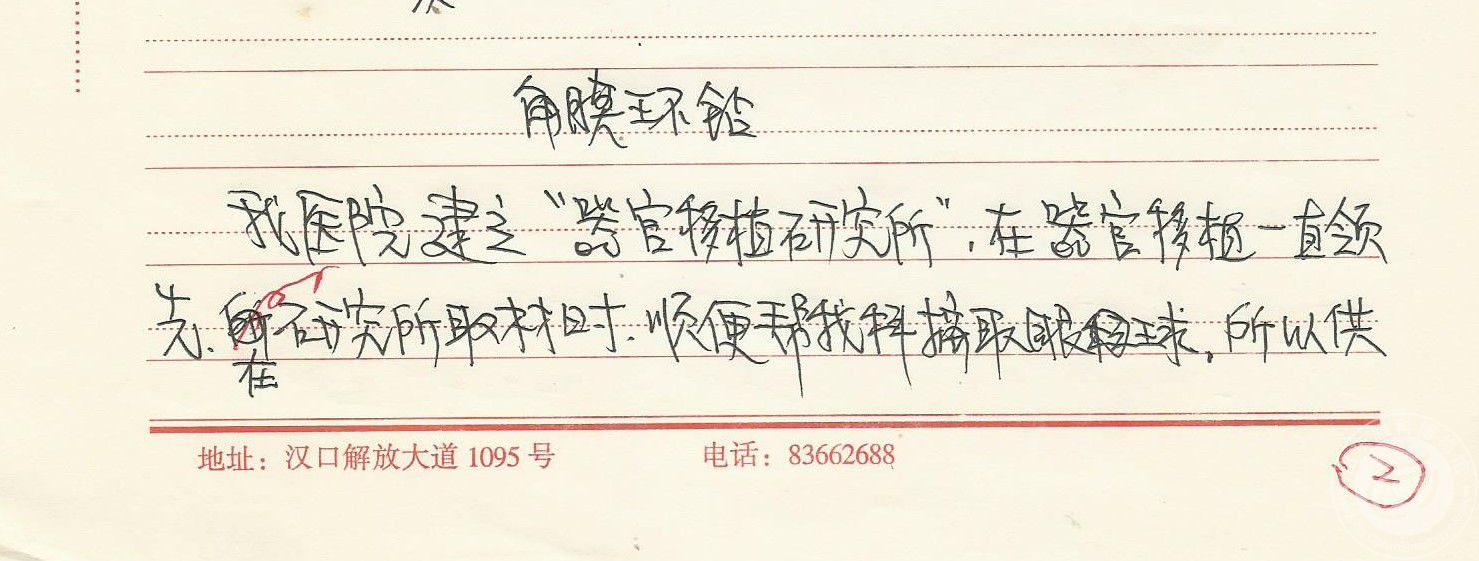 角膜环钻
我医院建立“器官移植研究所”，在器官移植一直领
先、在研究所取材时．顺便帮我科摘取眼球，所以供
地址：汉口解放大道 1095 号 电话：83662688
2